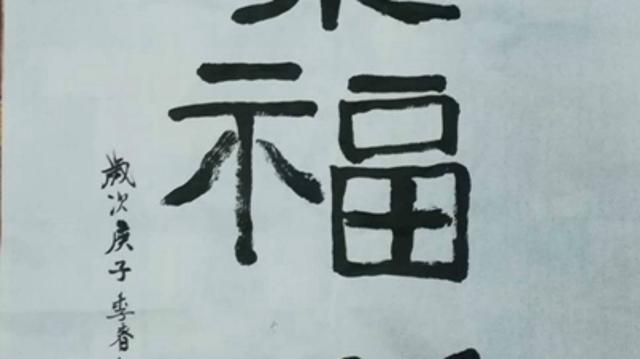 福
歲次庚子季春